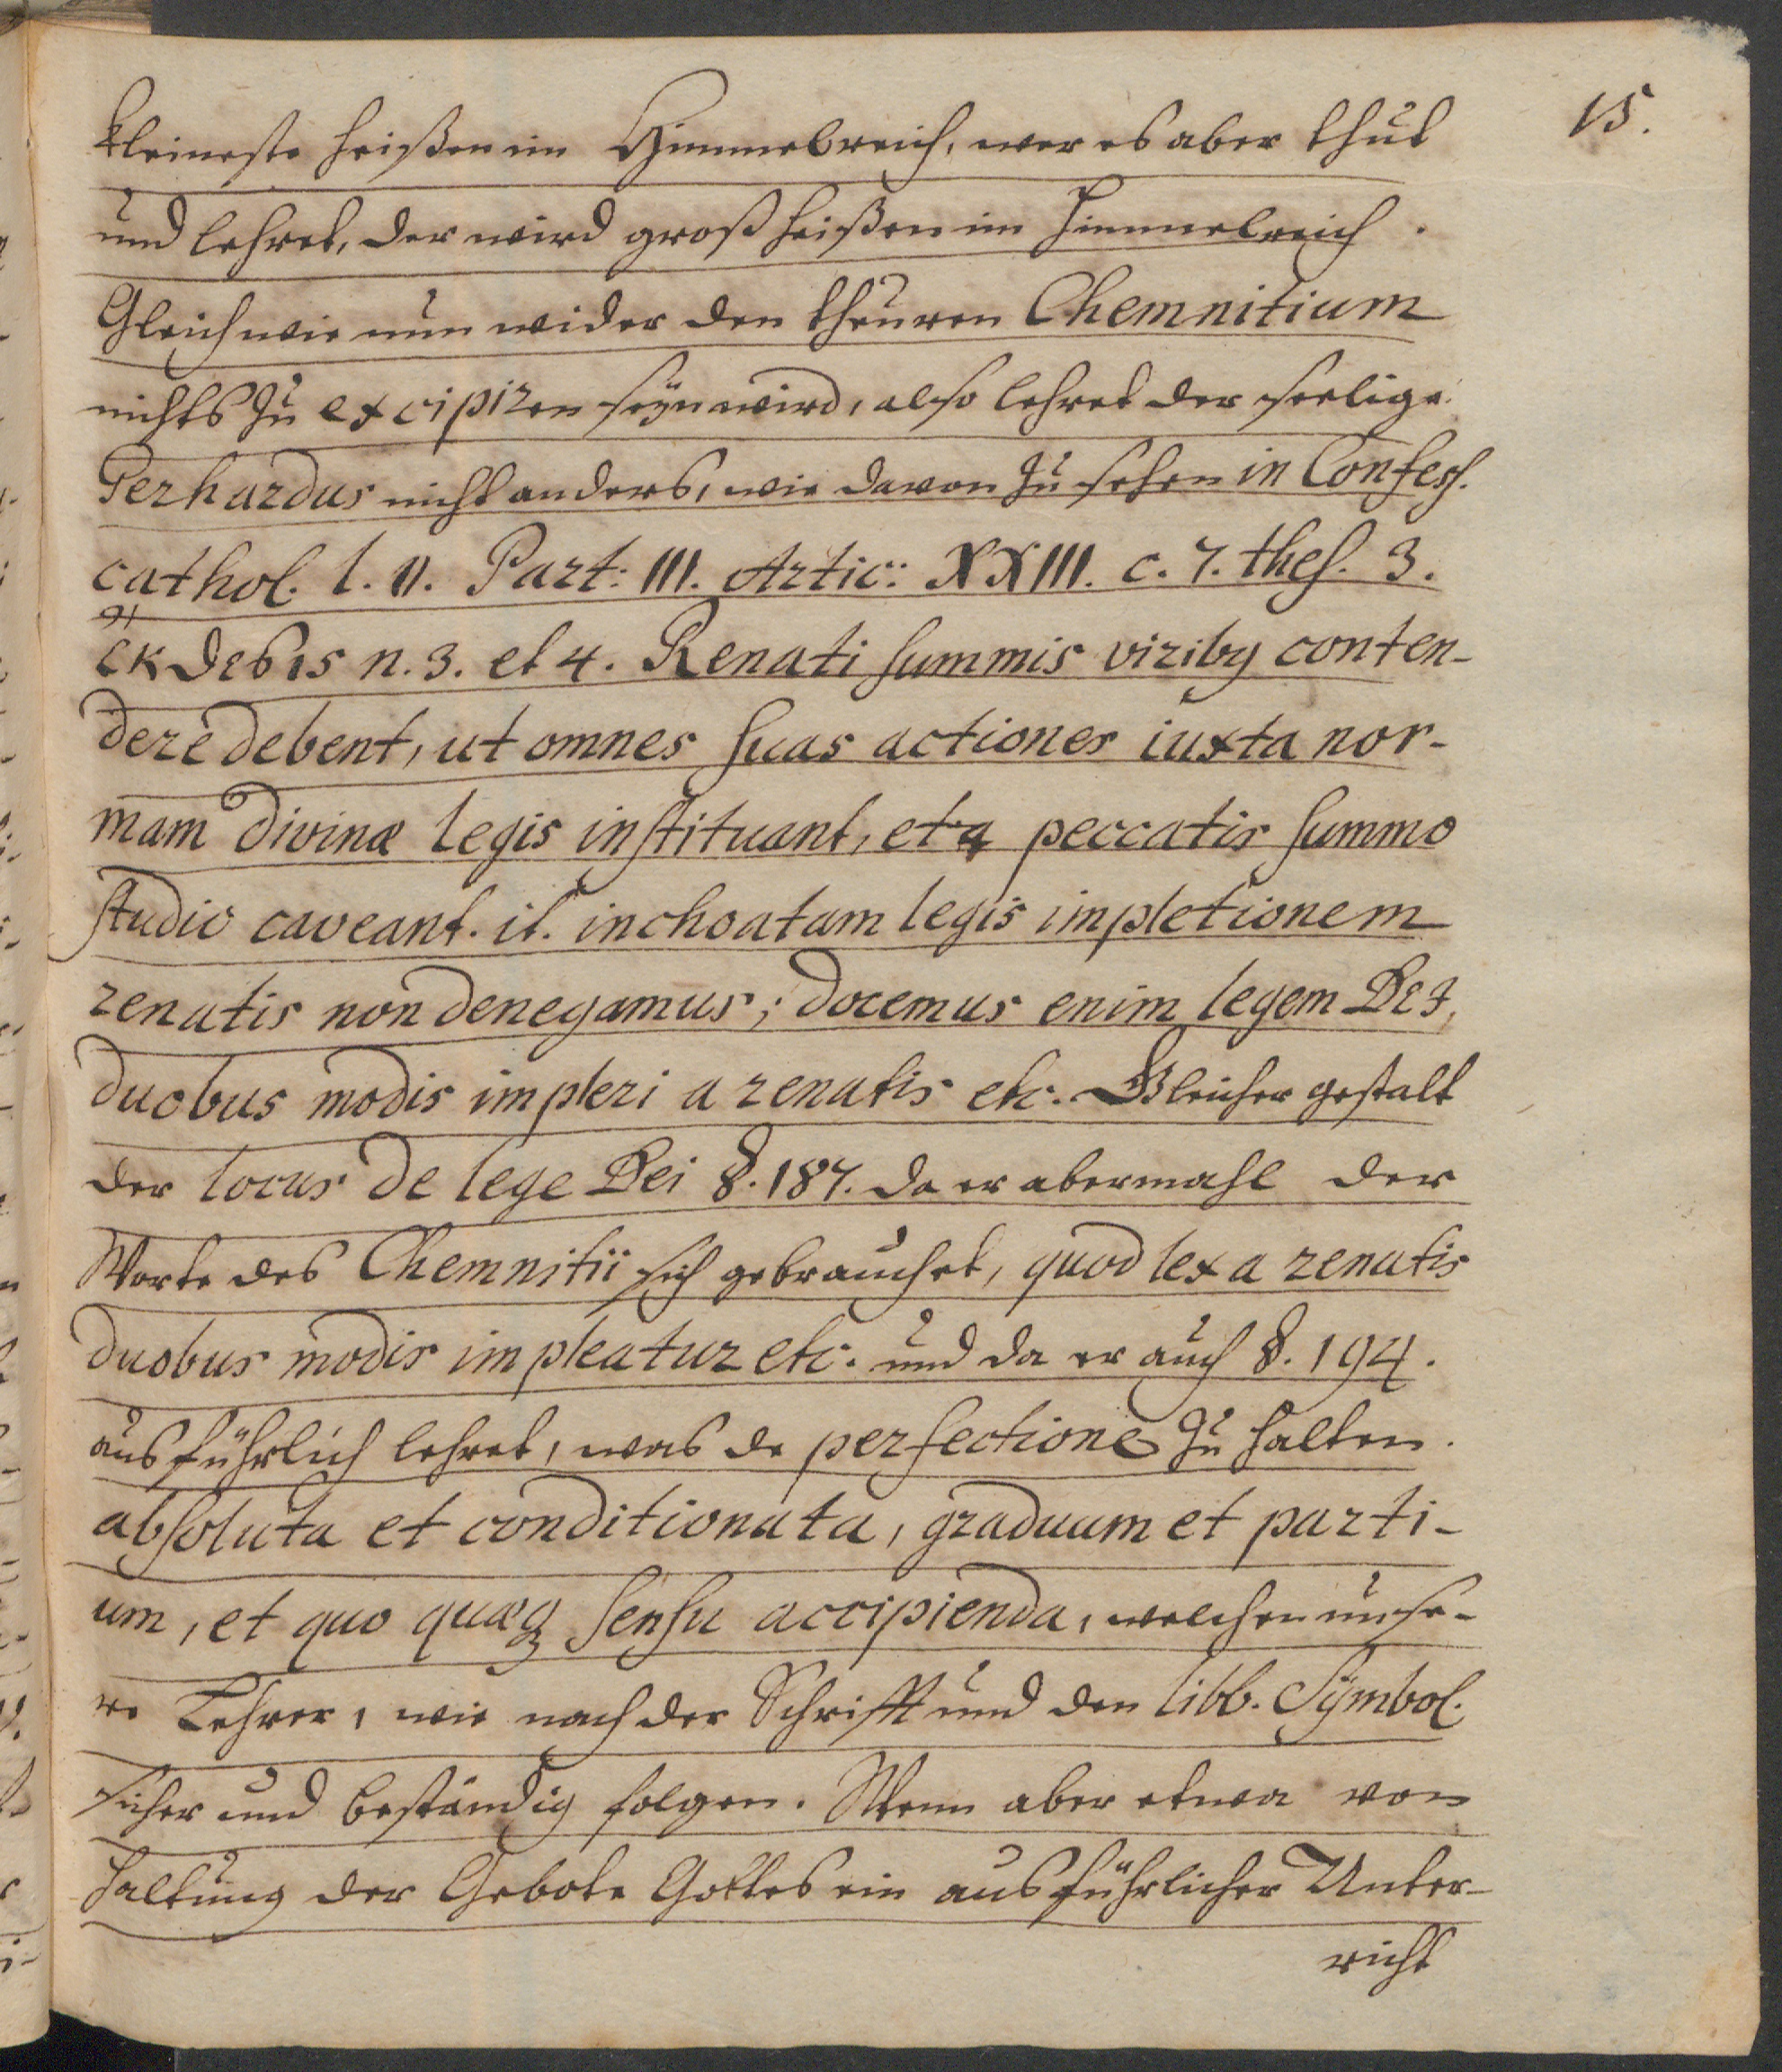 15.
kleineste heißen im Himmelreich, wer es aber thut
und lehret, der wird groß heißen im Himmelreich.
Gleichwie nun wider den theuren Chemnitium
nichts zu excipiren seyn wird, also lehret der seelige
Gerhardus nicht anders, wie davon zu sehen in Confess.
cathol. l. II. Part: III. Artic: XXIII. c. 7. thes. 3.
n. 3. et 4. Renati summis viribꝰ conten-
dere debent, ut omnes suas actiones iuxta nor-
mam divinæ legis instituant, et a peccatis summo
studio caveant. it. inchoatam legis impletionem
renatis non denegamus; docemus enim legem DEI,
duobus modis impleri a renatis etc. Gleicher gestalt
der locus de lege Dei §. 187. da er abermahl der
Worte des Chemnitii sich gebrauchet, quod lex a renatis
duobus modis impleatur etc. und da er auch §. 194.
ausführlich lehret, was de perfectione zu halten.
absoluta et conditionata, graduum et parti-
um, et quo quæqꝫ sensu accipienda, welchen unse-
re Lehrer, wie nach der Schrifft und den libb. Symbol.
sicher und beständig folgen. Wenn aber etwa von
Haltung der Gebote Gottes ein ausführlicher Unter-
richt